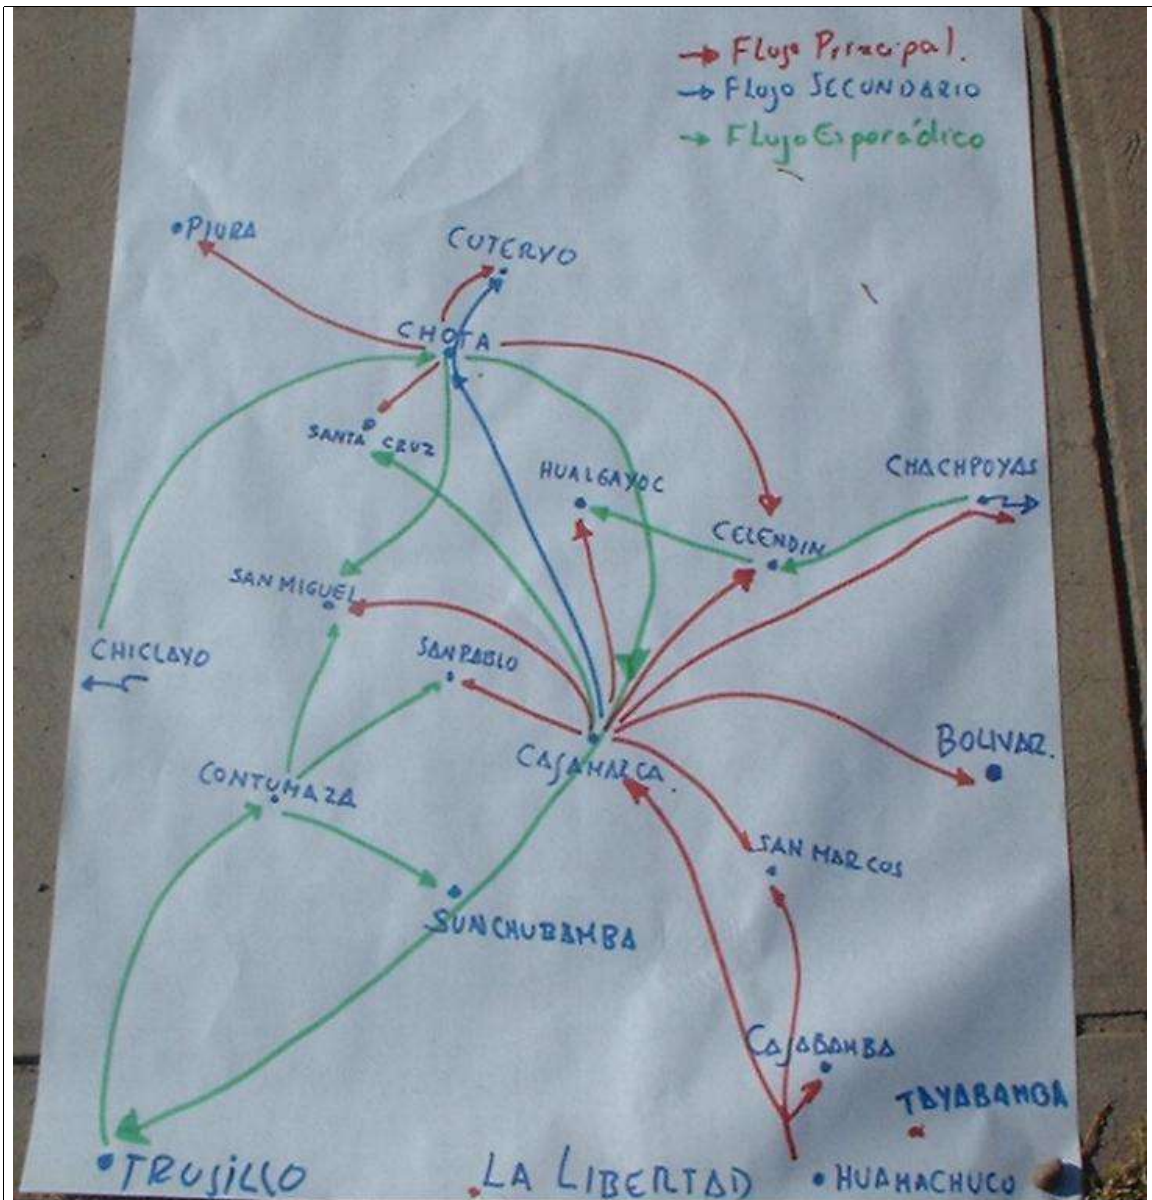 → Flujo Principal.
→ Flujo SECUNDARIO
→ Flujo Esporádico
PIURA
CUTERVO
CHOTA
SANTA CRUZ
HUALGAYOC
CHACHPOYAS
CELENDIN
SAN MIGUEL
CHICLAYO
SAN PABLO
BOLIVAR.
CAJAMARCA
CONTUMAZA
SAN MARCOS
SUNCHUBAMBA
CAJABAMBA
TAYABAMBA
TRUJILLO
LA LIBERTAD
HUAMACHUCO